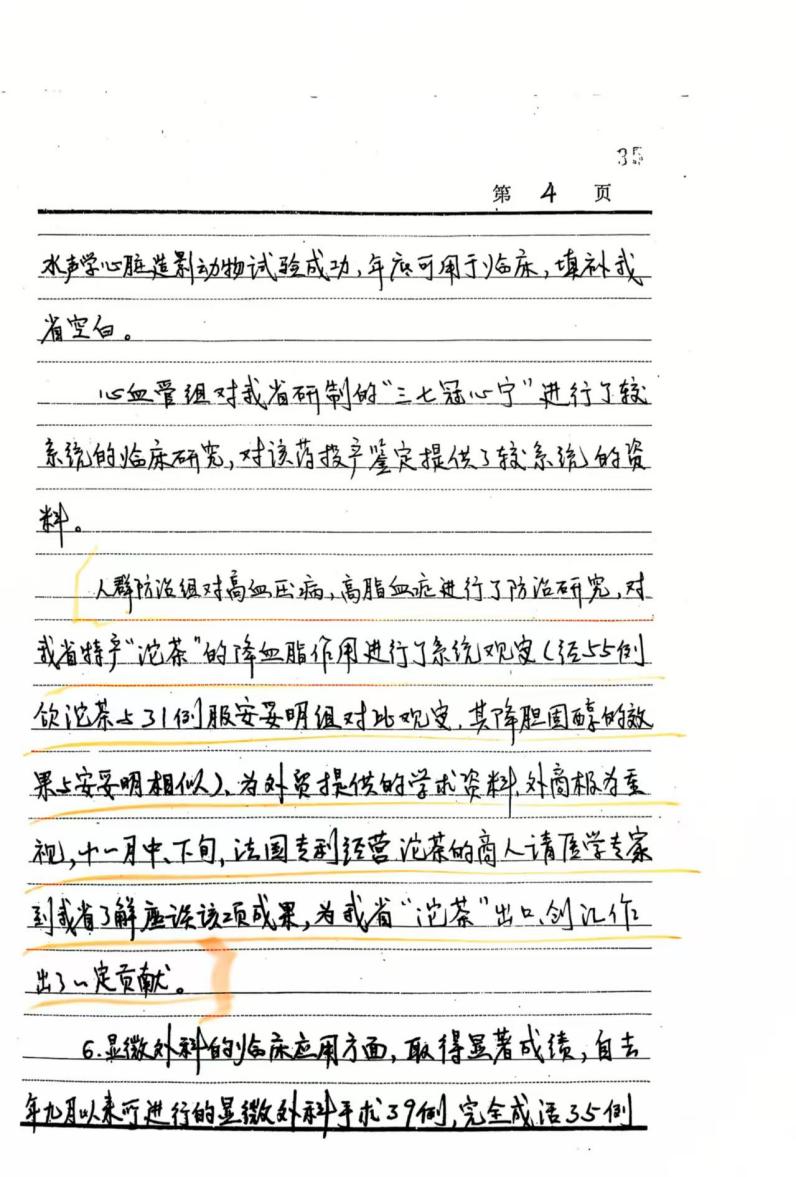 35
第 4 页
水声学心脏造影动物试验成功,年底可用于临床,填补我
省空白。
心血管组对我省研制的“三七冠心宁”进行了较
系统的临床研究,对该药投产鉴定提供了较系统的资
料。
人群防治组对高血压病,高脂血症进行了防治研究,对
我省特产“沱茶”的降血脂作用进行了系统观察(经55例
饮沱茶与31例服安妥明组对比观察,其降胆固醇的效
果与安妥明相似)、为外贸提供的学术资料,外商极为重
视,十一月中、下旬,法国专利经营沱茶的商人请医学专家
到我省了解座谈该项成果,为我省“沱茶”出口、创汇作
出了一定贡献。
6.显微外科的临床应用方面,取得显著成绩,自去
年九月以来所进行的显微外科手术39例,完全成活35例